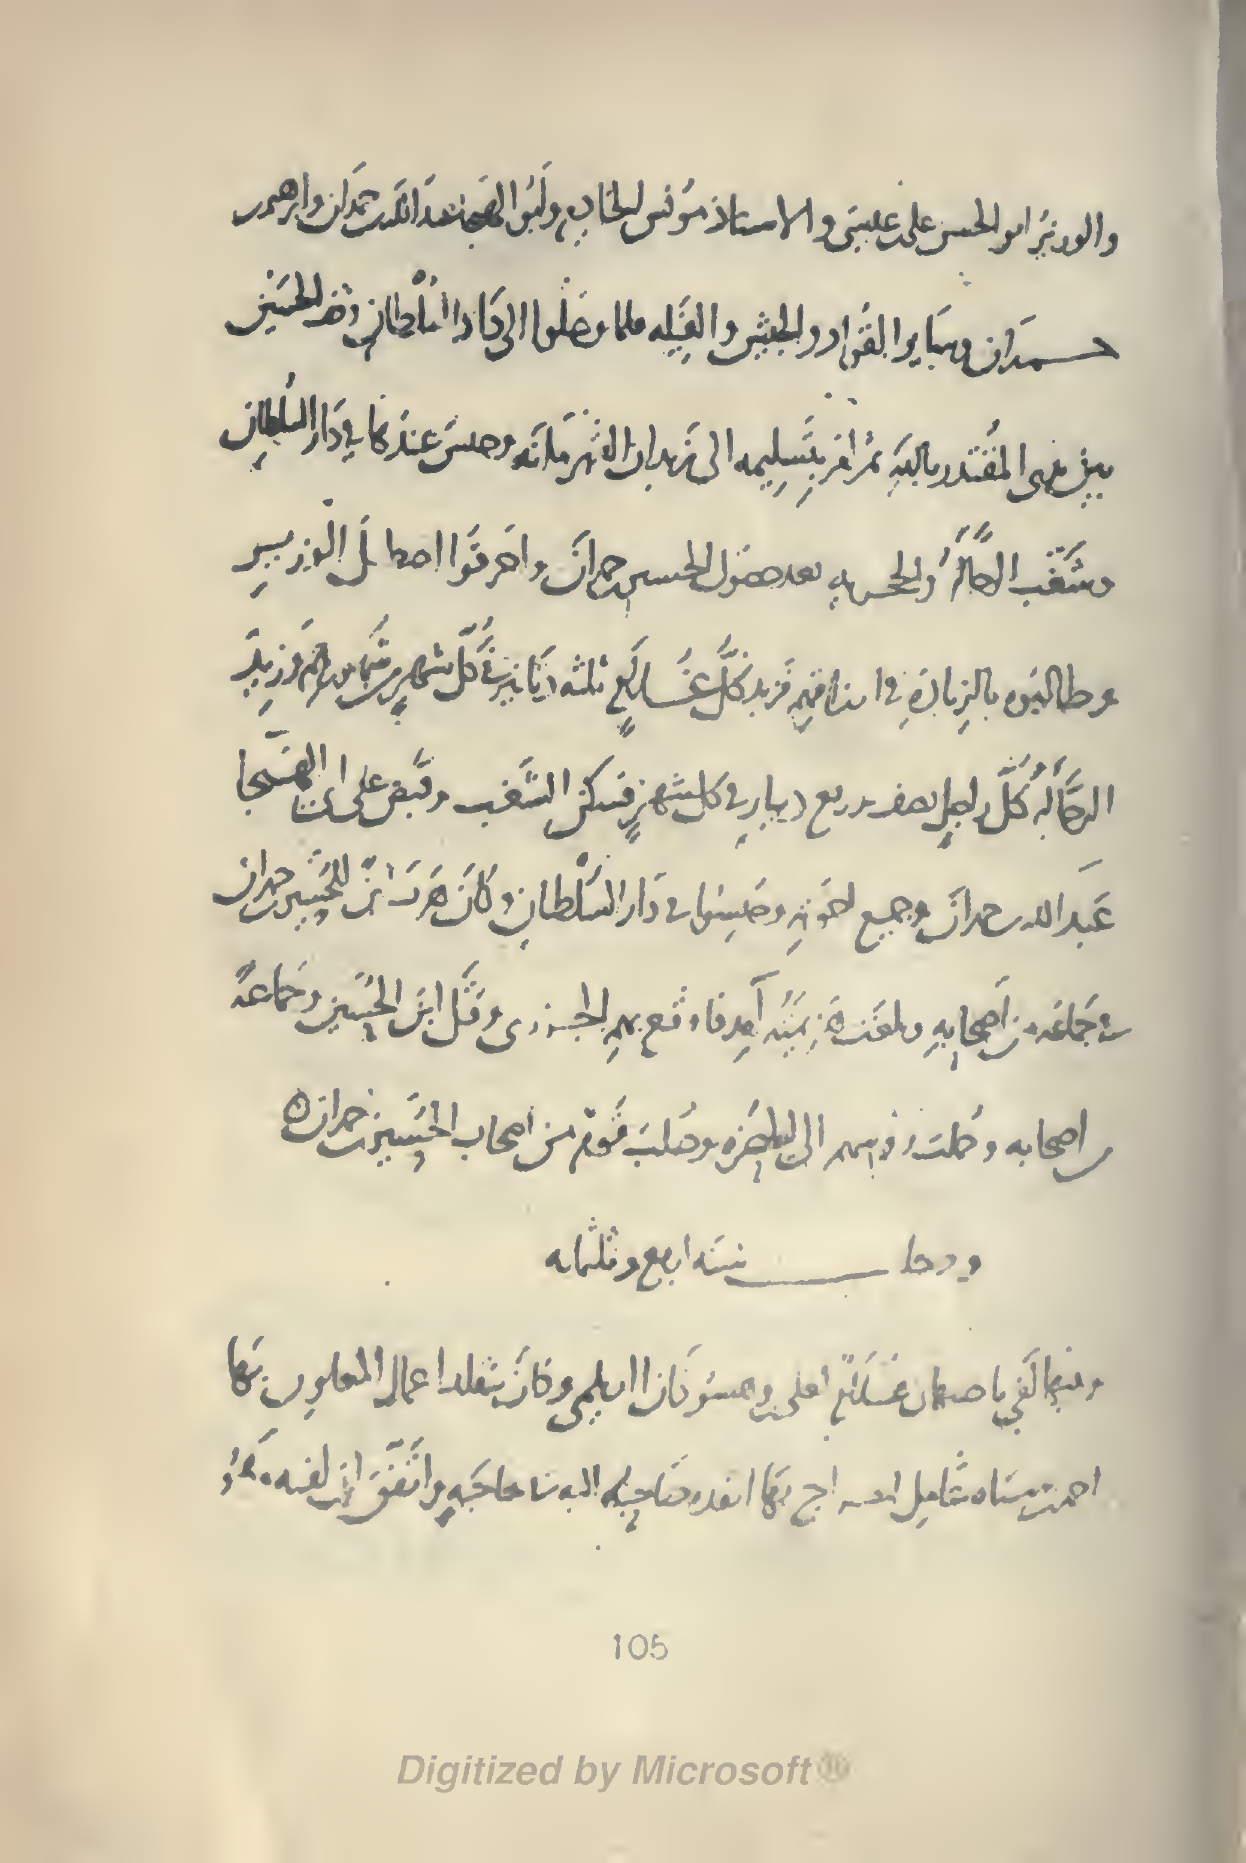 والوزير ابو الحسن على بن عيسى والاستاذ مونس الخادم وابو الهيجا عبد الله بن حمدان وابرهيم بن
حمدان وسايرُ القُوَّاد والجيش والقتله فلما وصَلُوا الى دَار السُلْطانِ وقف الحُسَين
بين يدى المُقتدر بالله ثم امَر بتَسليمه الى زيدان القهرمانه وحبس عندها في دَار السُلطانِ
وشَغّب الرجَّالَهُ والحجريه بعد حصول الحسين بن حمدانَ واحرقوا اصطبل الوزير
وطالبوه بالزيادَةِ في ارزاقهم فزيد كلُّ غُلامٍ ثلثه دَنانير في كُلّ شهرٍ وزيدَ
الرجَّالهُ كُلُّ راجلٍ نصف وربع دينارٍ في كل شهرٍ فسكن الشَغب وقُبض على ابى الهَيجا
عَبد الله بن حمدانَ وجميع اخوته وحُبِسُوا في دَار السُلْطانِ وكانَ هَرَبَ ابنٌ للحُسين بن حمدان
في جَماعَه من اَصحابِهِ وبلغت هَزيمتُه آمِد فاوقع بهم الجزرى وقتل ابنُ الحُسَين وجماعَهٌ
من اصحابه وحُملت رؤسهم الى الحَضرَه وصُلبَ قومٌ من اصحاب الحُسَين بن حمدان ه
ودخلت سنَه اربع وثلثمايه
وفيها لَقى باصبهان على بن وهسوذان الديلمى وكانَ يتقلد اعمال المعاون بها
احمد بن سَاه متقلد الخراج بها انفذه صَاحبه اليه في حاجَهٍ واتّفَقَ ان لقيه
105
Digitized by Microsoft®